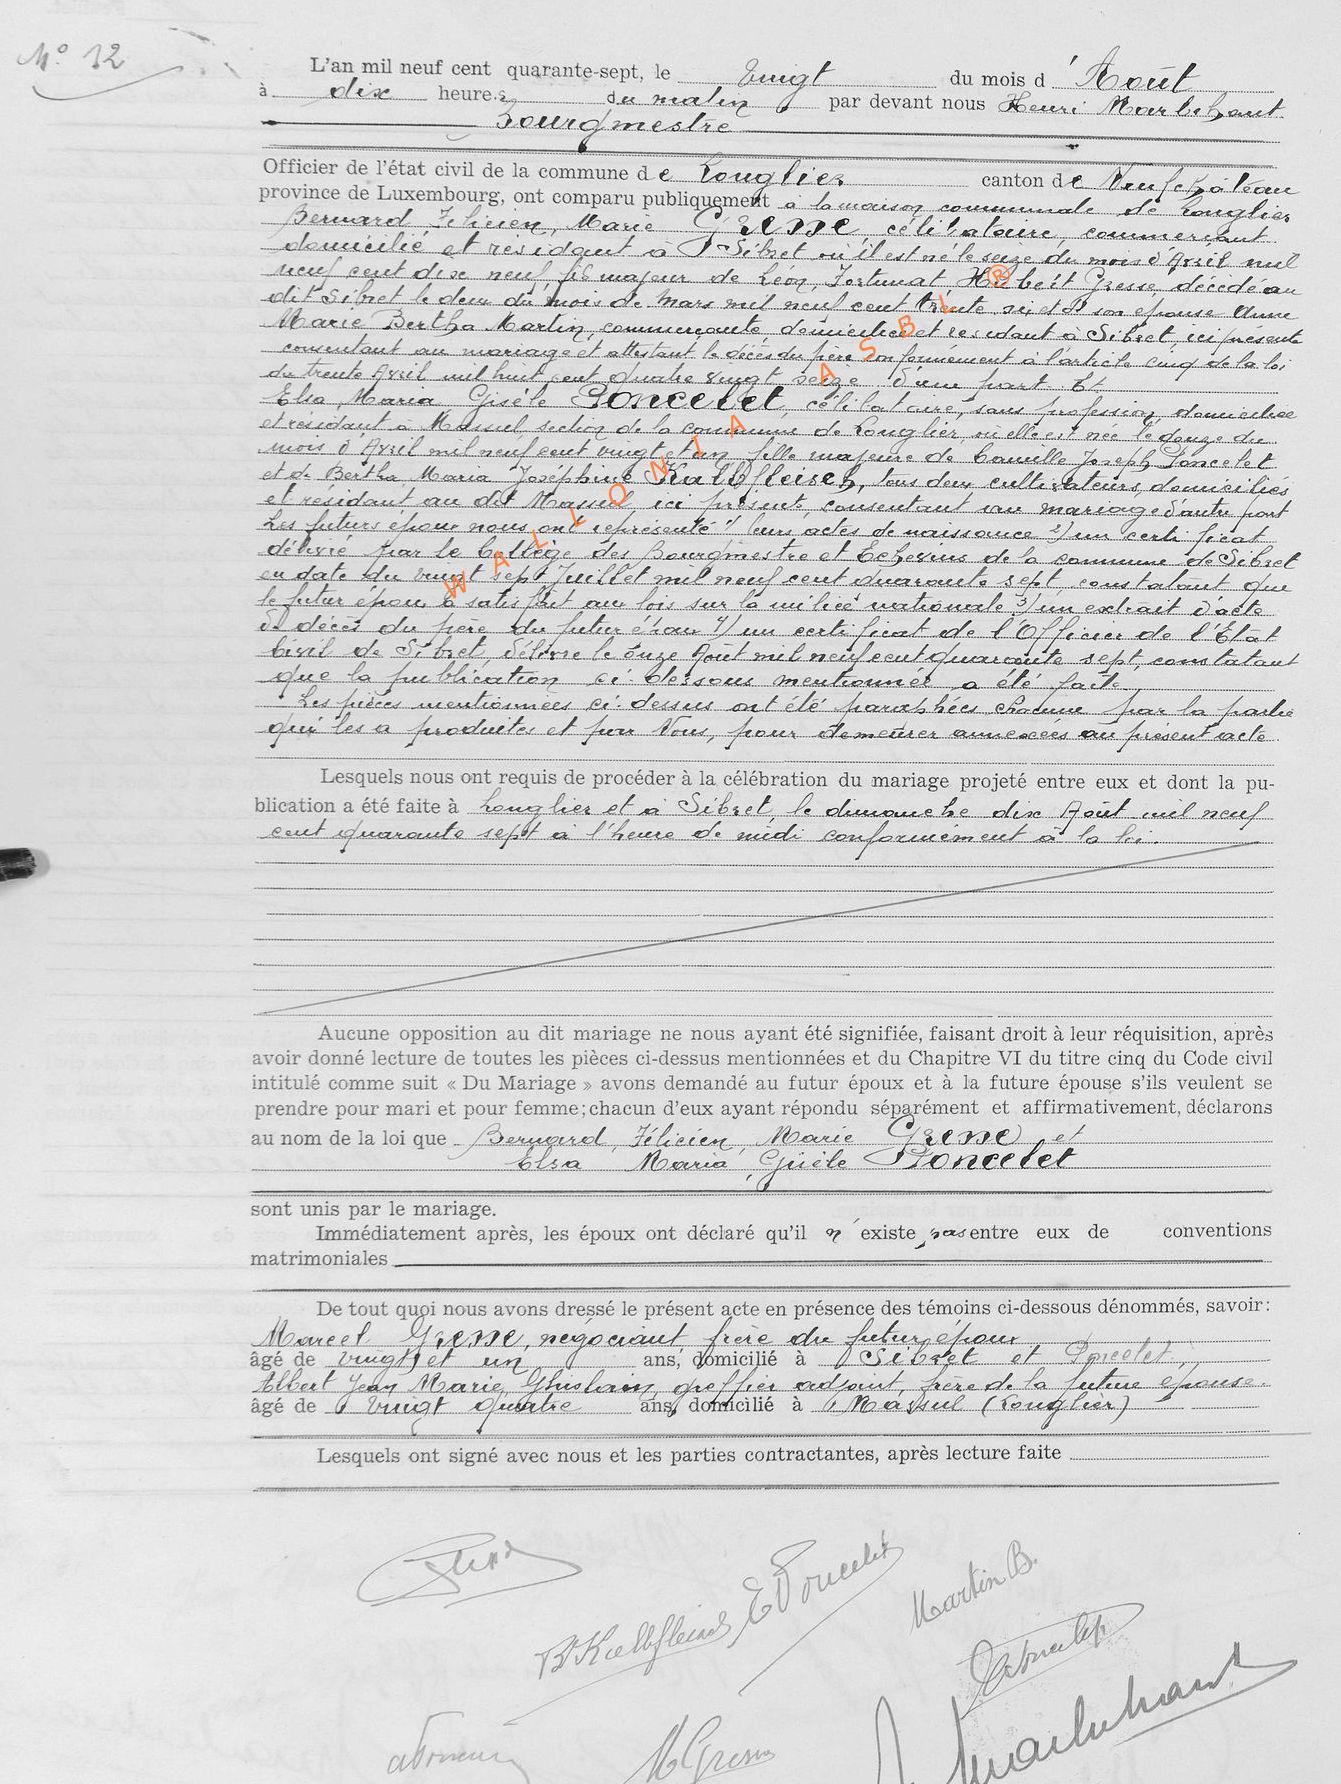 N° 32
L'an mil neuf cent quarante-sept, le vingt du mois d' Août
à dix heures du matin par devant nous Henri Marbehant
Bourgmestre
Officier de l'état civil de la commune de Longlier canton de Neufchâteau
province de Luxembourg, ont comparu publiquement à la maison communale de Longlier
Bernard, Félicien, Marie Gresse célibataire, commerçant
domicilié et résidant à Sibret où il est né le seize du mois d'Avril mil
neuf cent dix neuf, fils majeur de Léon, Fortunat, Gresse, décédé au
dit Sibret le deux du mois de Mars mil neuf cent trente six et d' son épouse Anne
Marie Bertha Martin, commerçante domiciliée et résidant à Sibret, ici présente
consentant au mariage et attestant le décès du père conformément à l'article cinq de la loi
du trente Avril mil huit cent quatre vingt seize d'une part Et
Elsa, Maria Gisèle Poncelet, célibataire, sans profession, domiciliée
et résidant à Massul, section de la commune de Longlier, où elle est née le douze du
mois d'Avril mil neuf cent vingt et un fille majeure de Camille Joseph Poncelet
et de Bertha Maria Joséphine Kalbfleisch, tous deux cultivateurs, domiciliés
et résidant au dit Massul, ici présent, consentant au mariage d'autre part
Les futurs époux nous ont représenté 1/ leurs actes de naissance 2/ un certificat
délivré par le Collège des Bourgmestre et Echevins de la commune de Sibret
en date du vingt sept Juillet mil neuf cent quarante sept, constatant que
le futur époux a satisfait aux lois sur la milice nationale 3/ un extrait d'acte
de décès du père du futur époux 4/ un certificat de l'Officier de l'État
Civil de Sibret, délivré le onze Août mil neuf cent quarante sept, constatant
que la publication ci-dessous mentionnée a été faite
Les pièces mentionnées ci-dessus ont été paraphées chacune par la partie
qui les a produites et par Nous, pour demeurer annexées au présent acte
Lesquels nous ont requis de procéder à la célébration du mariage projeté entre eux et dont la pu-
blication a été faite à Longlier et à Sibret, le dimanche dix Août mil neuf
cent quarante sept à l'heure de midi conformément à la loi.
Aucune opposition au dit mariage ne nous ayant été signifiée, faisant droit à leur réquisition, après
avoir donné lecture de toutes les pièces ci-dessus mentionnées et du Chapitre VI du titre cinq du Code civil
intitulé comme suit « Du Mariage » avons demandé au futur époux et à la future épouse s'ils veulent se
prendre pour mari et pour femme; chacun d'eux ayant répondu séparément et affirmativement, déclarons
au nom de la loi que Bernard, Félicien, Marie Gresse et
Elsa Maria, Gisèle Poncelet
sont unis par le mariage.
Immédiatement après, les époux ont déclaré qu'il n'existe pas entre eux de conventions
matrimoniales
De tout quoi nous avons dressé le présent acte en présence des témoins ci-dessous dénommés, savoir:
Marcel Gresse, négociant, frère du futur époux
âgé de vingt et un ans, domicilié à Sibret et Poncelet,
Albert Jean Marie, Ghislain, greffier adjoint, frère de la future épouse.
âgé de vingt quatre ans, domicilié à Massul (Longlier)
Lesquels ont signé avec nous et les parties contractantes, après lecture faite
Gresse
E Poncelet
Martin B.
B Kalbfleisch
M Gresse
Marbehant
WALLONIA ASBL ®